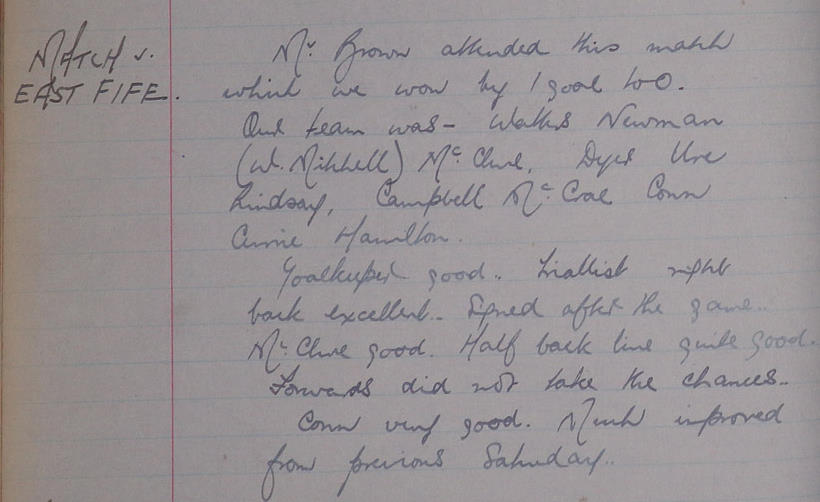 MATCH v.
EAST FIFE.
Mr Brown attended this match
which we won by 1 goal to 0.
Our team was - Walker Newman
(W. Mitchell) McClure, Dyer Ure
Lindsay, Campbell McCrae Conn
Currie Hamilton.
Goalkeeper good.. Triallist right
back excellent.. Signed after the game..
McClure good. Half back line quite good.
Forwards did not take the chances..
Conn very good. Much improved
from previous Saturday..